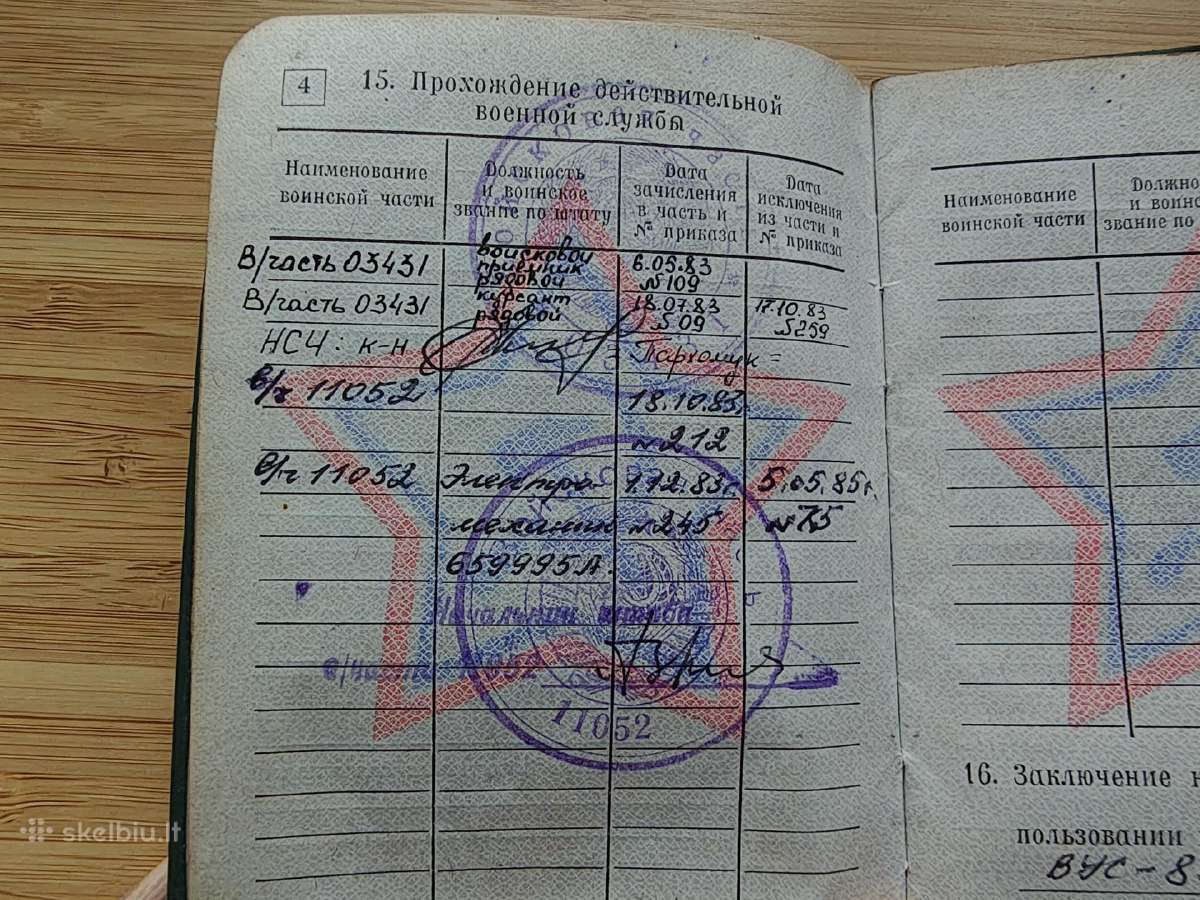 4
15. Прохождение действительной
военной службы
Наименование воинской части
Должность и воинское звание по штату
Дата зачисления в часть и № приказа
Дата исключения из части и № приказа
В/часть 03431 войсковой приемник рядовой 6.05.83 №109
В/часть 03431 курсант рядовой 18.07.83 №09 17.10.83 №259
НСЧ: к-н Пархомук =
в/ч 11052 18.10.83г.
№212
в/ч 11052 Электро- 9.12.83г. 5.05.85г.
механик №245 №75
659995А.
Начальник штаба
в/части 11052
11052
Наименование воинской части
Должно
и воинс
звание по
16. Заключение
пользовании
ВУС-8
skelbiu.lt